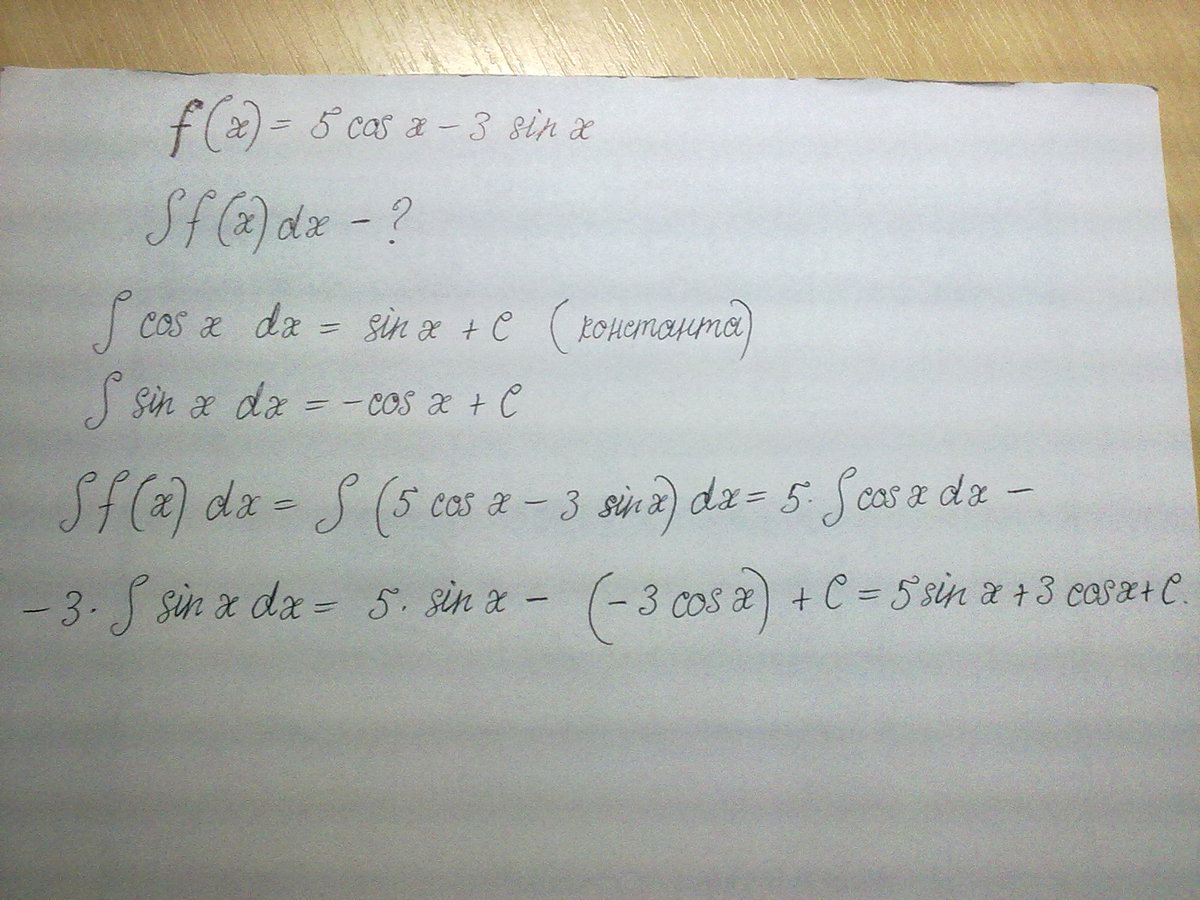 f(x) = 5 cos x - 3 sin x
∫f(x)dx - ?
∫ cos x dx = sin x + C (константа)
∫ sin x dx = -cos x + C
∫f(x) dx = ∫ (5 cos x - 3 sin x) dx = 5· ∫ cos x dx -
- 3· ∫ sin x dx = 5· sin x - (-3 cos x) + C = 5 sin x + 3 cos x + C.